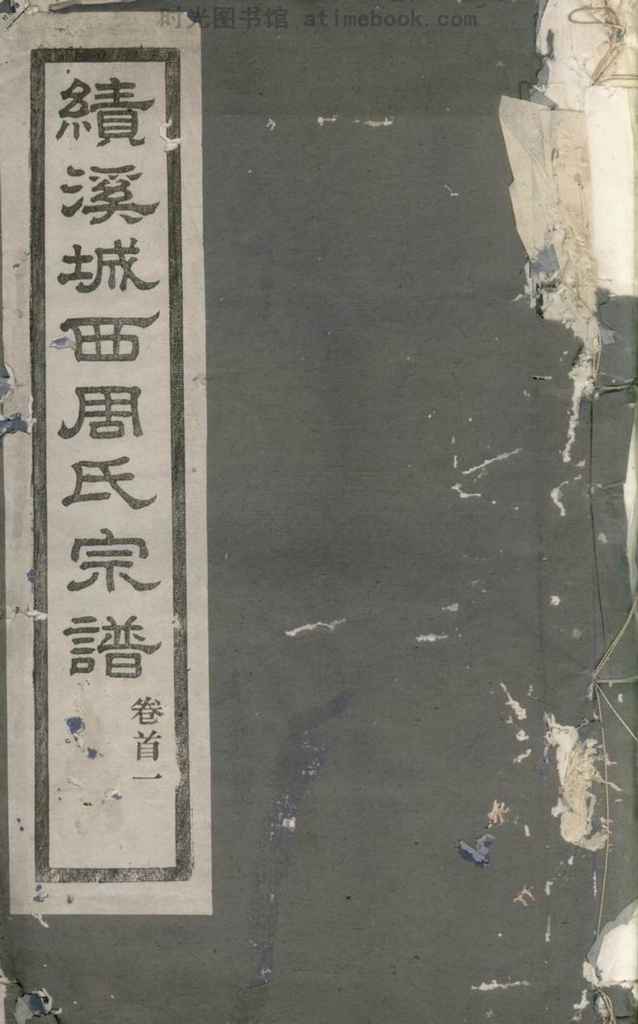 时光图书馆 atimebook.com
績溪城西周氏宗譜
卷首一